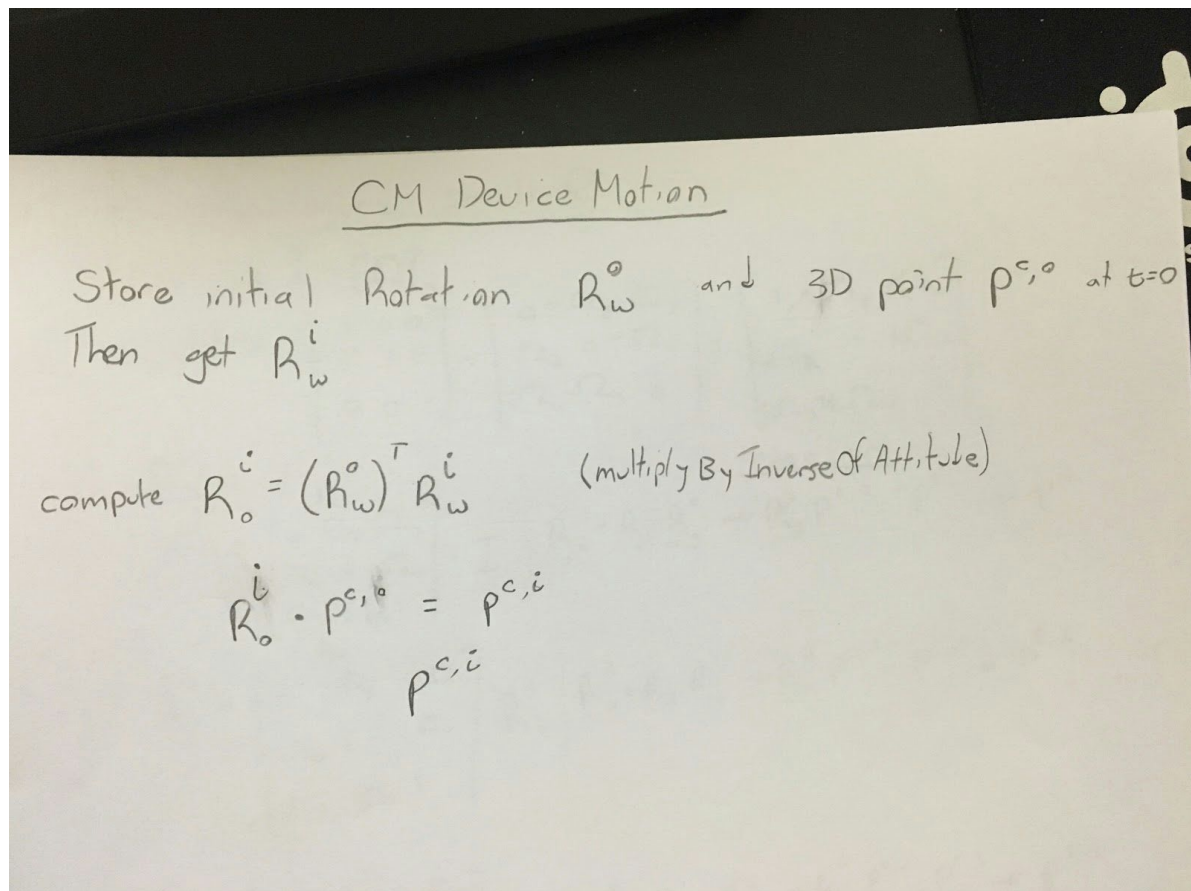 CM Device Motion
Store initial Rotation R_w^0 and 3D point p^{c,0} at t=0
Then get R_w^i
compute R_0^i = (R_w^0)^T R_w^i (multiply By Inverse Of Attitude)
R_0^i · p^{c,0} = p^{c,i}
p^{c,i}